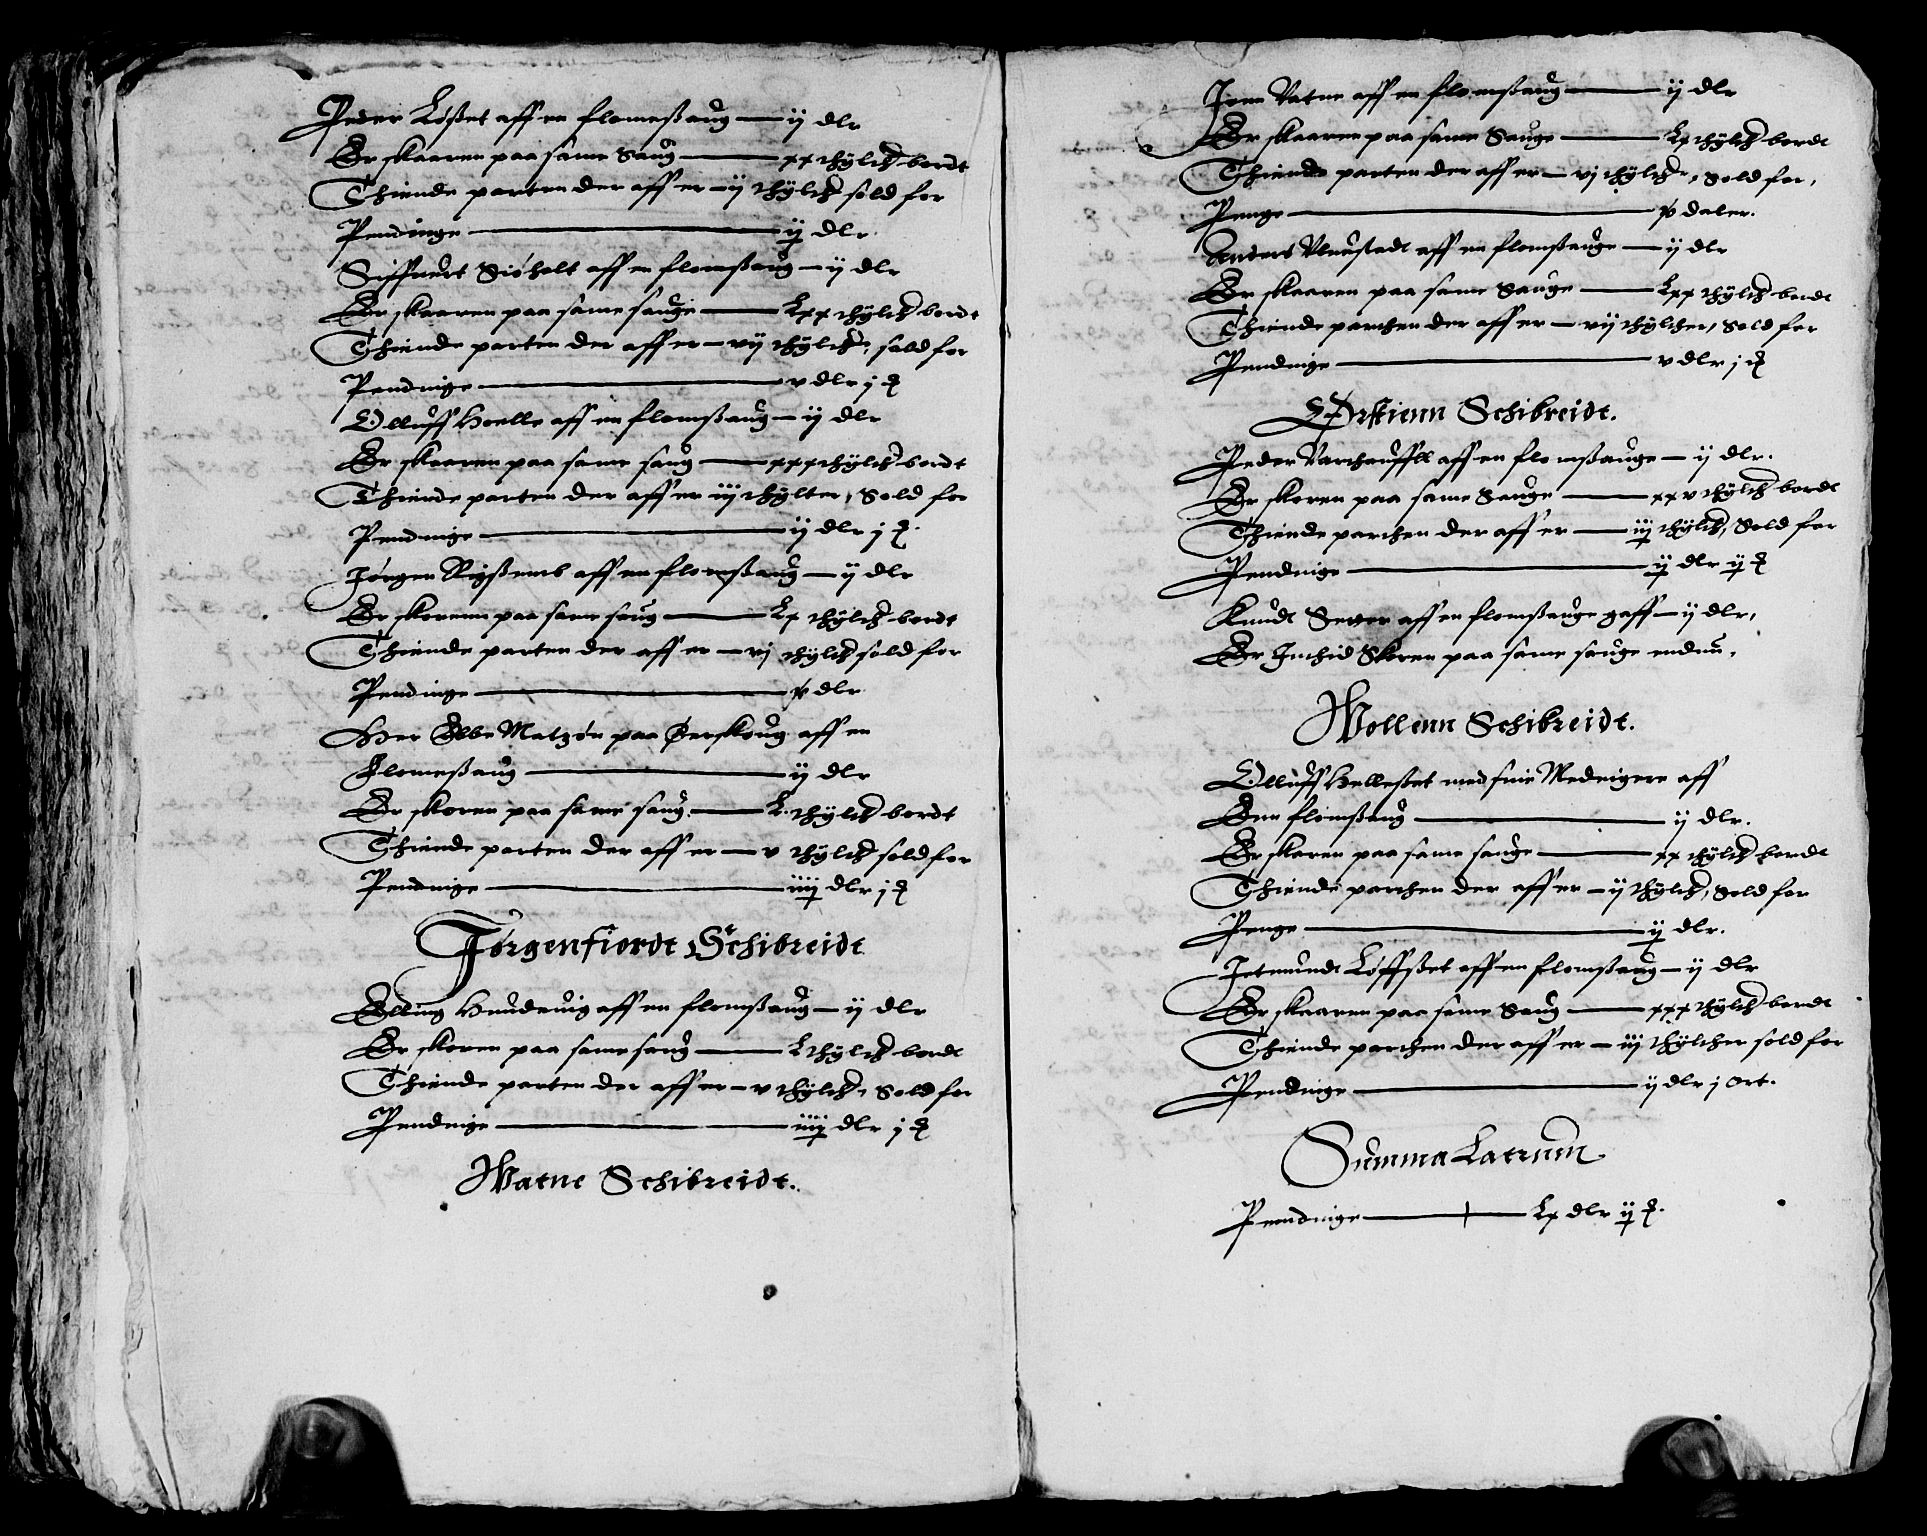 Peder Løßet aff en flomeßaug — ij dlr
Er skaaren paa same Saug — xx thylt bordt
Thiende parten der aff er — ij thylt sold for
Pendinge — ij dlr
Siffuert Siøholt aff en flomßaug — ij dlr
Er skaaren paa same sauge — Lxx thylt bordt
Thiende parten der aff er — vij thylt, sold for
Pendinge — v dlr j
Olluff Hoelle aff en flomßaug — ij dlr
Er skaaren paa same saug — xxx thylt bordt
Thiende parten der aff er iij thylter, Sold for
Pendinge — ij dlr j
Jørgen aff en flomßaug — ij dlr
Er skorenn paa same saug — Lx thylt bordt
Thiende parten der aff er — vj thylt sold for
Pendinge — dlr
Her Ebbe Matzøn paa Ørskoug aff en
Flomeßaug — ij dlr
Er skoren paa same saug — L thylt bordt
Thiende parten der aff er — v thylt sold for
Pendinge — iiij dlr j
Jørgenfiordt Schibreidt
Elling aff en flomßaug — ij dlr
Er skoren paa same saug — L thylt bordt
Thiende parten der aff er — v thylt, Sold for
Pendinge — iiij dlr j
Watne Schibreidt.
Joen Vatne aff en flomßaug — ij dlr
Er skaaren paa same Sauge — Lx thylt bordt
Thiende parten der aff er — vj thylt, Sold for,
Penge — daler.
Anders aff en flomßauge — ij dlr
Er skaaren paa same Sauge — Lxx thylt bordt
Thiende parthen der aff er — vij thylther, Sold for
Pendinge — v dlr j
Ørstienn Schibreidt.
Peder aff en flomßauge — ij dlr.
Er skoren paa same Sauge — xxv thylt bordt
Thiende parthen der aff er — iij thylt, Sold for
Pendinge — ij dlr ij
Knudt aff en flomßauge gaff — ij dlr,
Er Inthid Skoren paa same sauge endnu,
Wollenn Schibreidt.
Olluff Helleßet med sine Medeigere aff
Een flomßaug — ij dlr.
Er skaren paa same sauge — xx thylt bordt
Thiende parthen der aff er — ij thylt, Sold for
Penge — ij dlr.
Jetmundt Løffßet aff en flomßaug — ij dlr
Er skaaren paa same Saug — xxx thylt bordt
Thiende parthen der aff er — iij thylther sold for
Pendinge — ij dlr j Ort.
Summa Latrum
Pendinge — Lx dlr ij